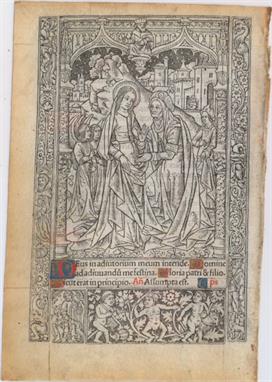 Deus in adiutorium meum intende. Domine
ad adiuvandū me festina. Gloria patri & filio
Sicut erat in principio. Añ Assumpta est. Ps